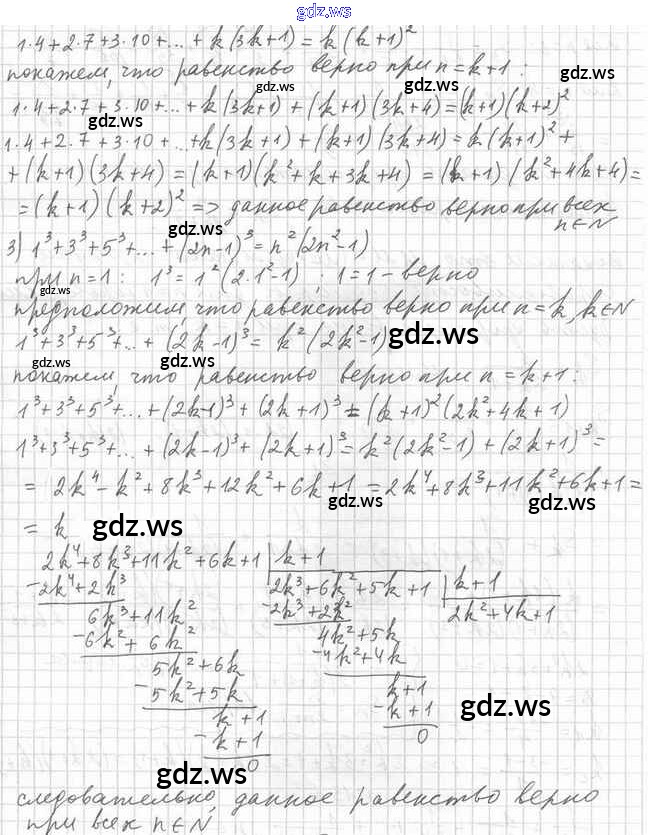 gdz.ws
1·4+2·7+3·10+...+k(3k+1)=k(k+1)²
покажем, что равенство верно при n=k+1:
gdz.ws gdz.ws gdz.ws
1·4+2·7+3·10+...+k(3k+1)+(k+1)(3k+4)=(k+1)(k+2)²
gdz.ws
1·4+2·7+3·10+...+k(3k+1)+(k+1)(3k+4)=k(k+1)²+
+(k+1)(3k+4)=(k+1)(k²+k+3k+4)=(k+1)(k²+4k+4)=
gdz.ws gdz.ws
=(k+1)(k+2)² => данное равенство верно при всех
n∈N
3) 1³+3³+5³+...+(2n-1)³=n²(2n²-1)
при n=1: 1³=1²(2·1²-1); 1=1-верно
gdz.ws
предположим, что равенство верно при n=k, k∈N
1³+3³+5³+...+(2k-1)³=k²(2k²-1)
gdz.ws
gdz.ws gdz.ws
покажем, что равенство верно при n=k+1:
1³+3³+5³+...+(2k-1)³+(2k+1)³=(k+1)²(2k²+4k+1)
1³+3³+5³+...+(2k-1)³+(2k+1)³=k²(2k²-1)+(2k+1)³=
=2k⁴-k²+8k³+12k²+6k+1=2k⁴+8k³+11k²+6k+1=
gdz.ws gdz.ws
=k
gdz.ws
2k⁴+8k³+11k²+6k+1 | k+1
-2k⁴+2k³ 2k³+6k²+5k+1 | k+1
6k³+11k² -2k³+2k² 2k²+4k+1
-6k²+6k² 4k²+5k
5k²+6k -4k²+4k
-5k²+5k k+1
k+1 -k+1
gdz.ws
-k+1 0
0
gdz.ws
следовательно, данное равенство верно
при всех n∈N